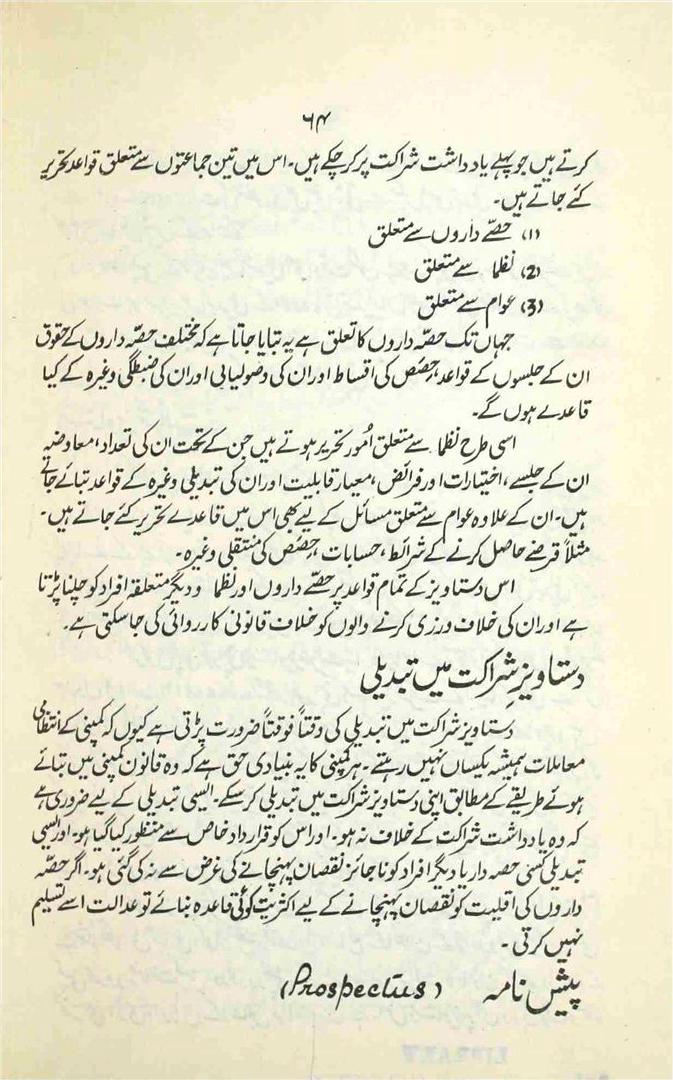 ۶۴
کرتے ہیں جو پہلے یادداشت شراکت پر کر چکے ہیں۔ اس میں تین جماعتوں سے متعلق قواعد تحریر
کئے جاتے ہیں۔
(1) حصّے داروں سے متعلق
(2) نظما سے متعلق
(3) عوام سے متعلق
جہاں تک حصّہ داروں کا تعلق ہے یہ بتایا جاتا ہے کہ مختلف حصّہ داروں کے حقوق
ان کے جلسوں کے قواعد، حِصَص کی اقساط اور ان کی وصولیابی اور ان کی ضبطگی وغیرہ کے کیا
قاعدے ہوں گے۔
اسی طرح نظما سے متعلق اُمور تحریر ہوتے ہیں جن کے تحت ان کی تعداد، معاوضہ
ان کے جلسے، اختیارات اور فرائض، معیار قابلیت اور ان کی تبدیلی وغیرہ کے قواعد بتائے جاتے
ہیں۔ ان کے علاوہ عوام سے متعلق مسائل کے لیے بھی اس میں قاعدے تحریر کئے جاتے ہیں۔
مثلاً قرضے حاصل کرنے کے شرائط، حسابات، حِصَص کی منتقلی وغیرہ۔
اس دستاویز کے تمام قواعد پر حصّے داروں اور نظما و دیگر متعلقہ افراد کو چلنا پڑتا
ہے اور ان کی خلاف ورزی کرنے والوں کو خلاف قانونی کارروائی کی جا سکتی ہے۔
دستاویزِ شراکت میں تبدیلی
دستاویز شراکت میں تبدیلی کی وقتاً فوقتاً ضرورت پڑتی ہے کیوں کہ کمپنی کے انتظامی
معاملات ہمیشہ یکساں نہیں رہتے۔ ہر کمپنی کا یہ بنیادی حق ہے کہ وہ قانون کمپنی میں بتائے
ہوئے طریقے کے مطابق اپنی دستاویز شراکت میں تبدیلی کر سکے۔ ایسی تبدیلی کے لیے ضروری ہے
کہ وہ یادداشت شراکت کے خلاف نہ ہو۔ اور اس کو قرارداد خاص سے منظور کیا گیا ہو۔ اور ایسی
تبدیلی کسی حصہ دار یا دیگر افراد کو ناجائز نقصان پہنچانے کی غرض سے نہ کی گئی ہو۔ اگر حصّہ
داروں کی اقلیت کو نقصان پہنچانے کے لیے اکثریت کوئی قاعدہ بنائے تو عدالت اسے تسلیم
نہیں کرتی۔
پیش نامہ (Prospectus)